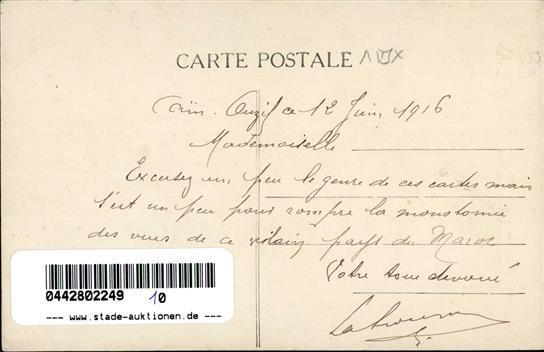 CARTE POSTALE
Aïn. Ouzif ce 12 Juin 1916
Mademoiselle
Excusez un peu le genre de ces cartes mais
c'est un peu pour rompre la monotomie
des vues de ce vilain pays du Maroc
Votre tous devoué
0442802249 10
--- www.stade-auktionen.de ---